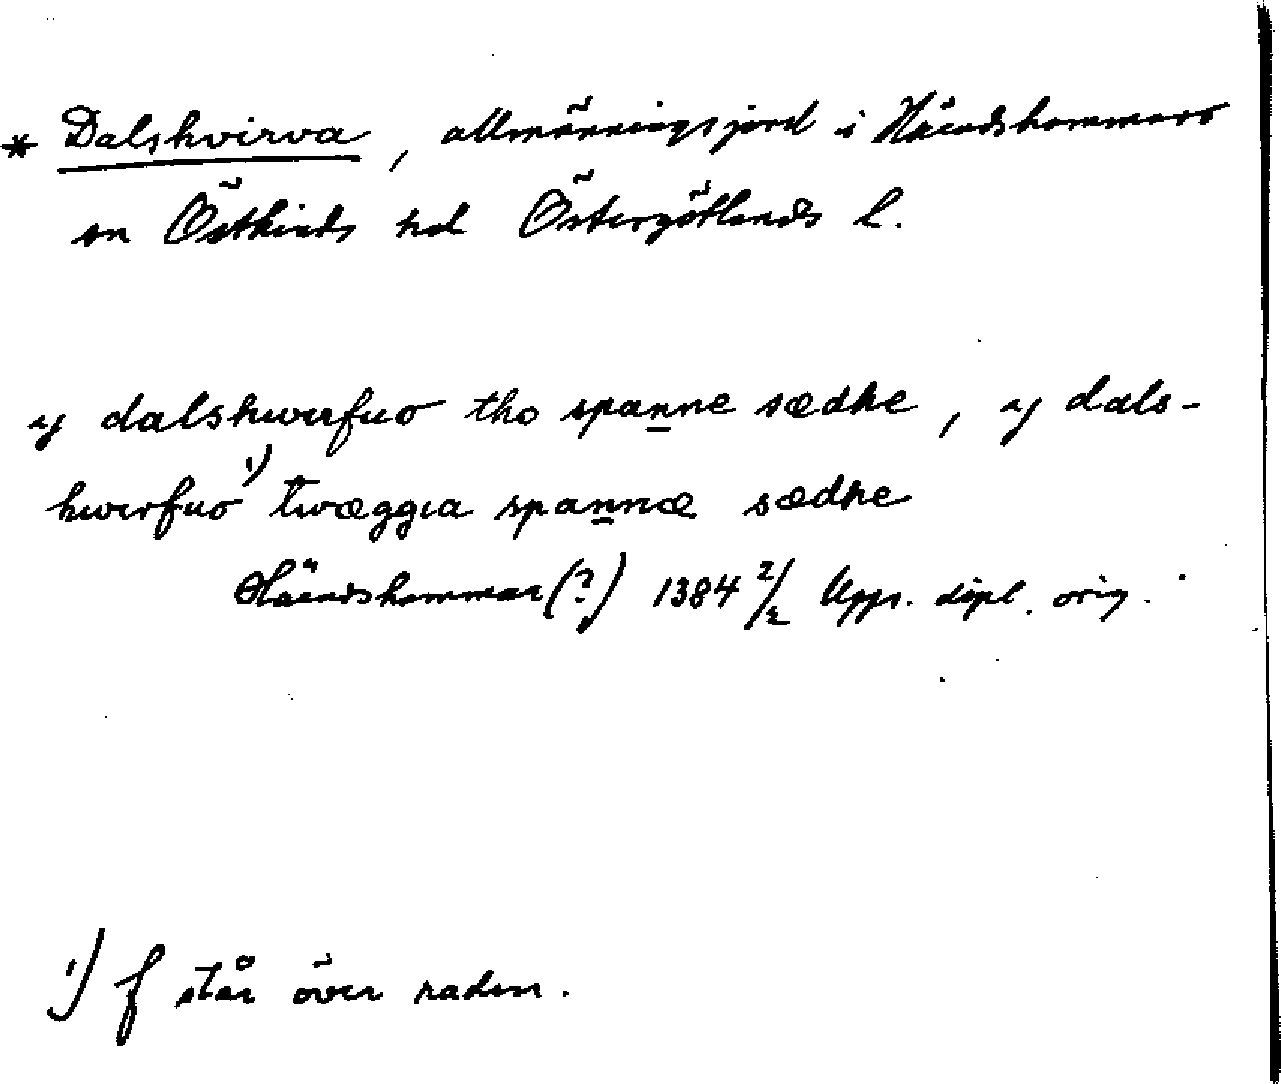 * Dalshvirva, allmänningsjord i Häradshammars
sn Östkinds hd Östergötlands l.
y dalshwirfuo tho spanne sædhe, y dals-
hwirfuo¹⁾ twæggia spannæ sædhe
Häradshammar (?) 1384 2/2 Upps. dipl. orig.
¹⁾ f står över raden.